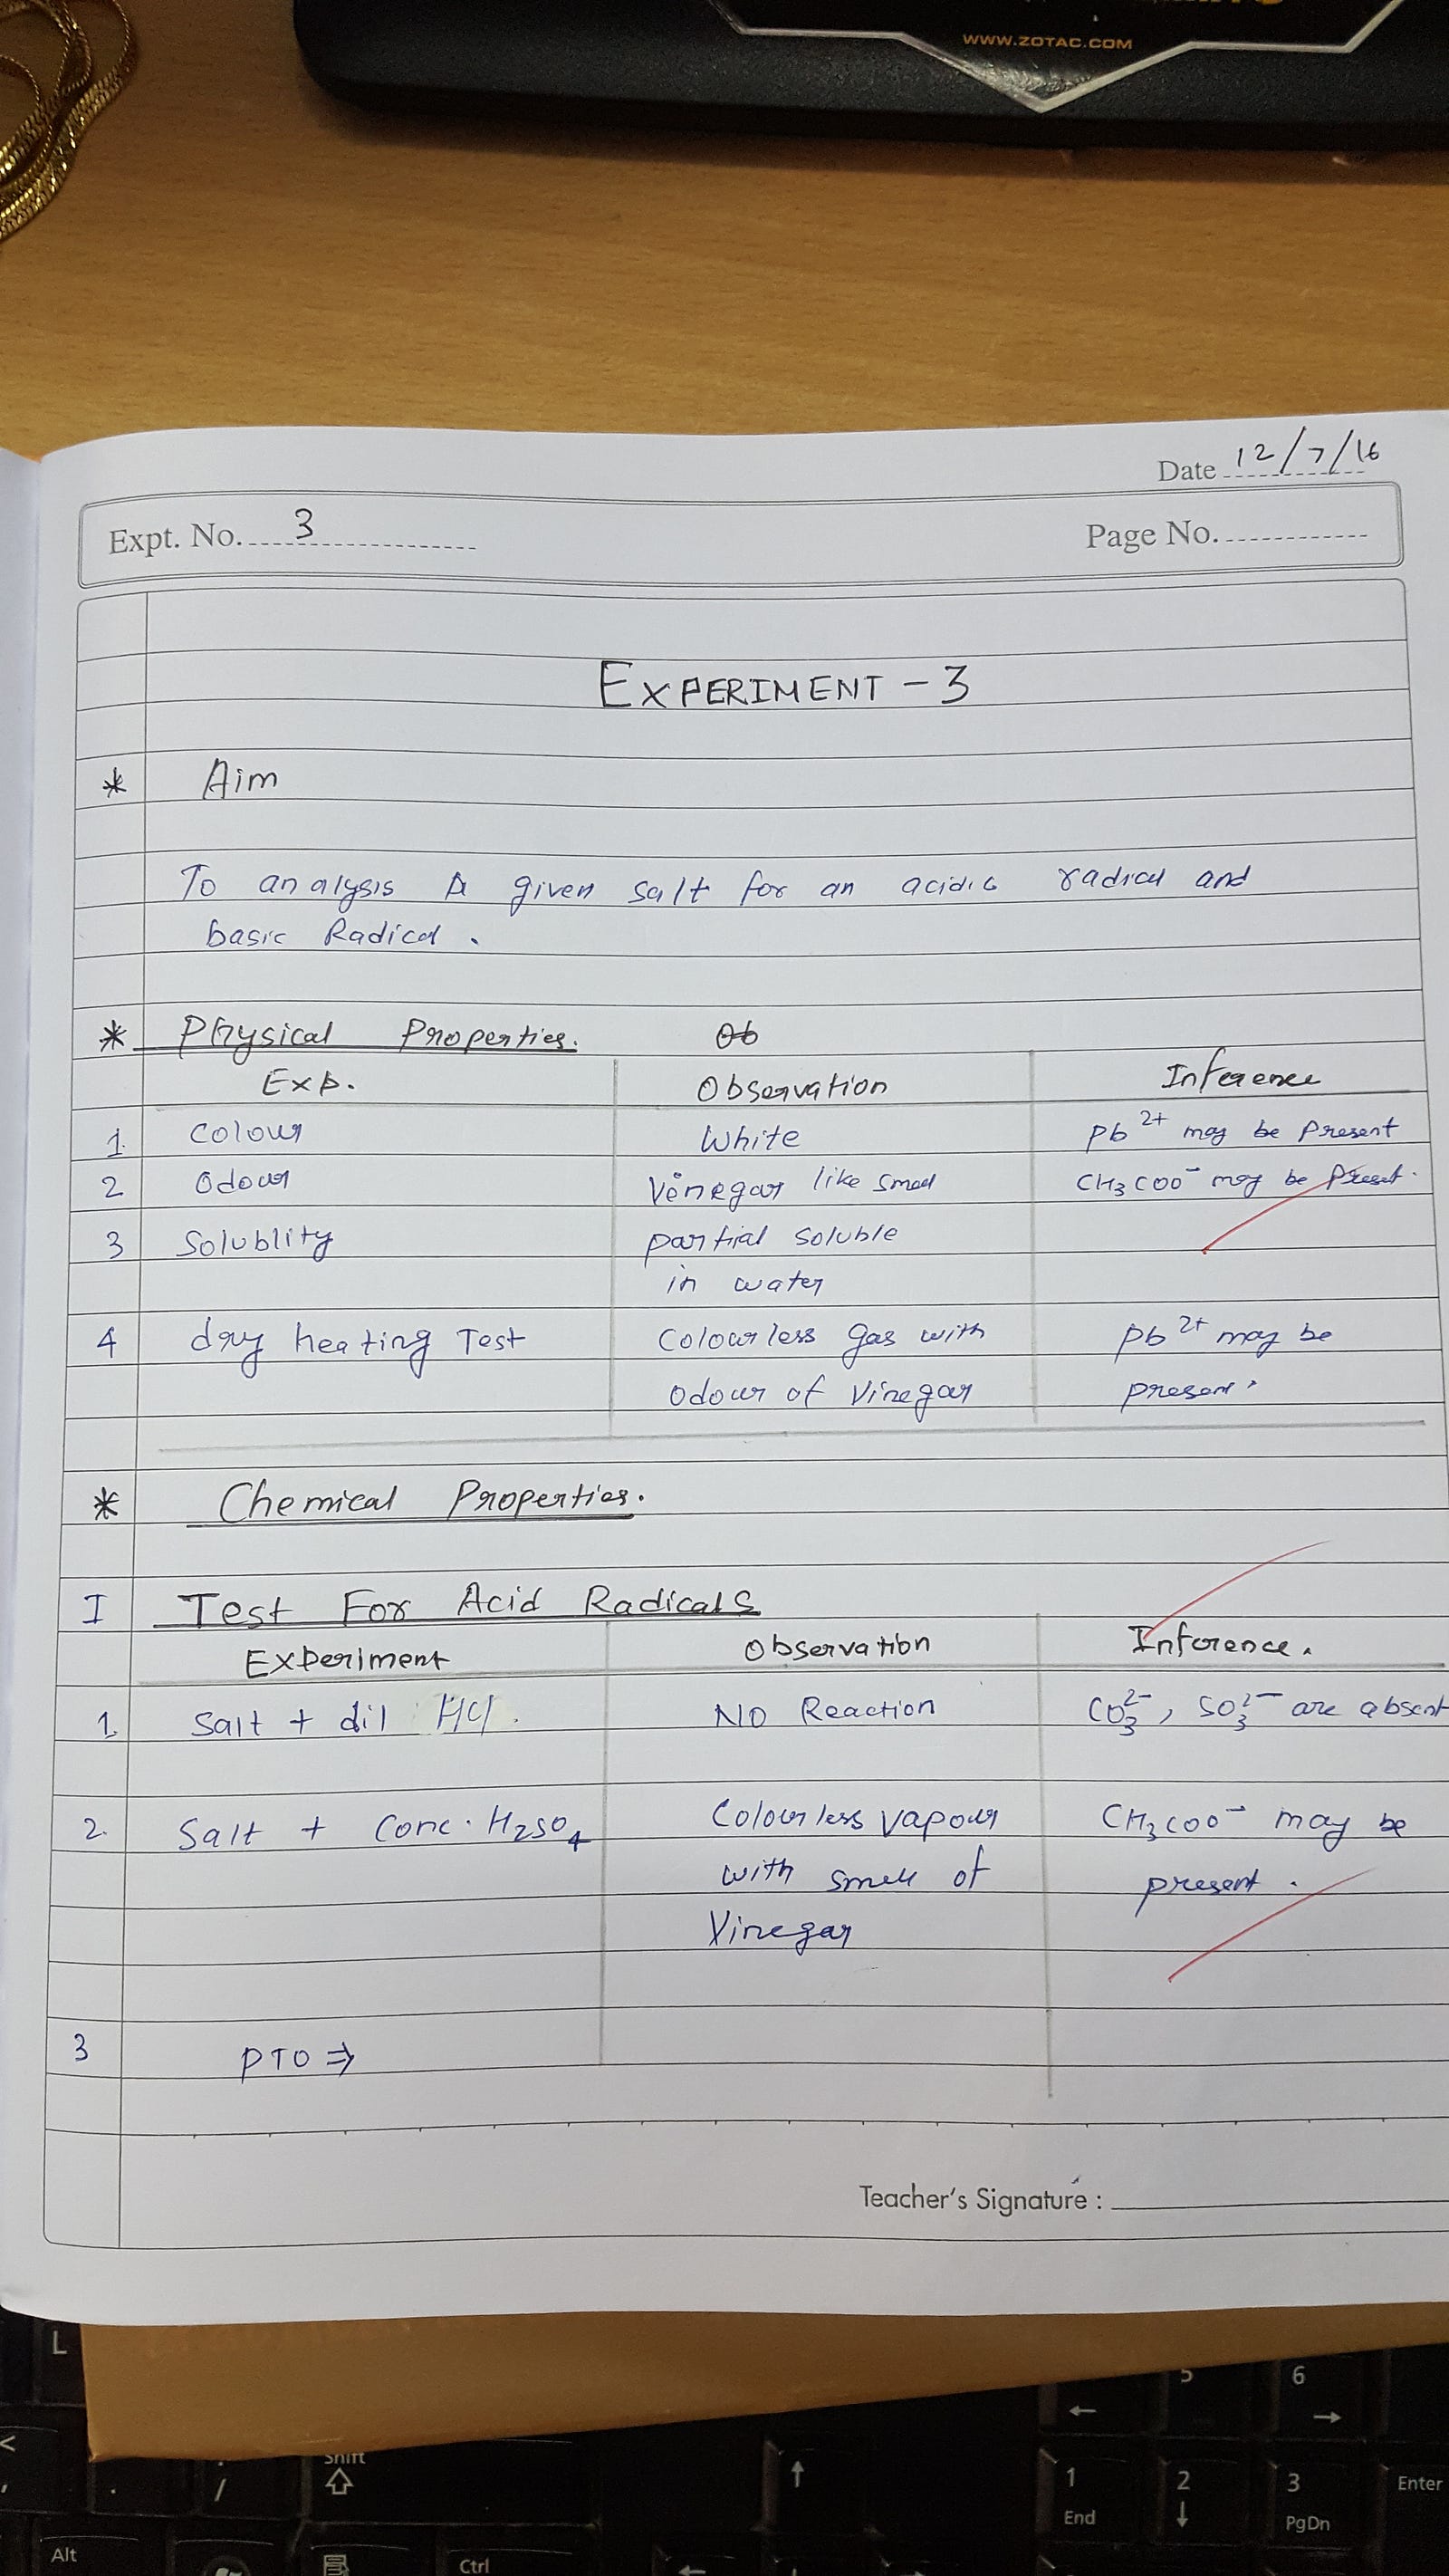 WWW.ZOTAC.COM
Date 12/7/16
Expt. No. 3 Page No.
EXPERIMENT - 3
* Aim
To analysis A given salt for an acidic radical and
basic Radical.
* Physical Properties. Ob
Exp. Observation Inference
1. Colour White Pb²⁺ may be Present
2 Odour Vinegar like Smell CH₃COO⁻ may be Present.
3 Solublity partial soluble
in water
4 dry heating Test Colourless gas with Pb²⁺ may be
Odour of Vinegar present.
* Chemical Properties.
I Test For Acid Radicals
Experiment Observation Inference.
1. Salt + dil HCl. NO Reaction CO₃²⁻, SO₃²⁻ are absent
2. Salt + Conc. H₂SO₄ Colourless vapour CH₃COO⁻ may be
with smell of present.
Vinegar
3 PTO ⇒
Teacher's Signature :
L
5 6
← →
< Shift ↑ 1 2 3 Enter
, . / ⇧ End ↓ PgDn
Alt Ctrl ←